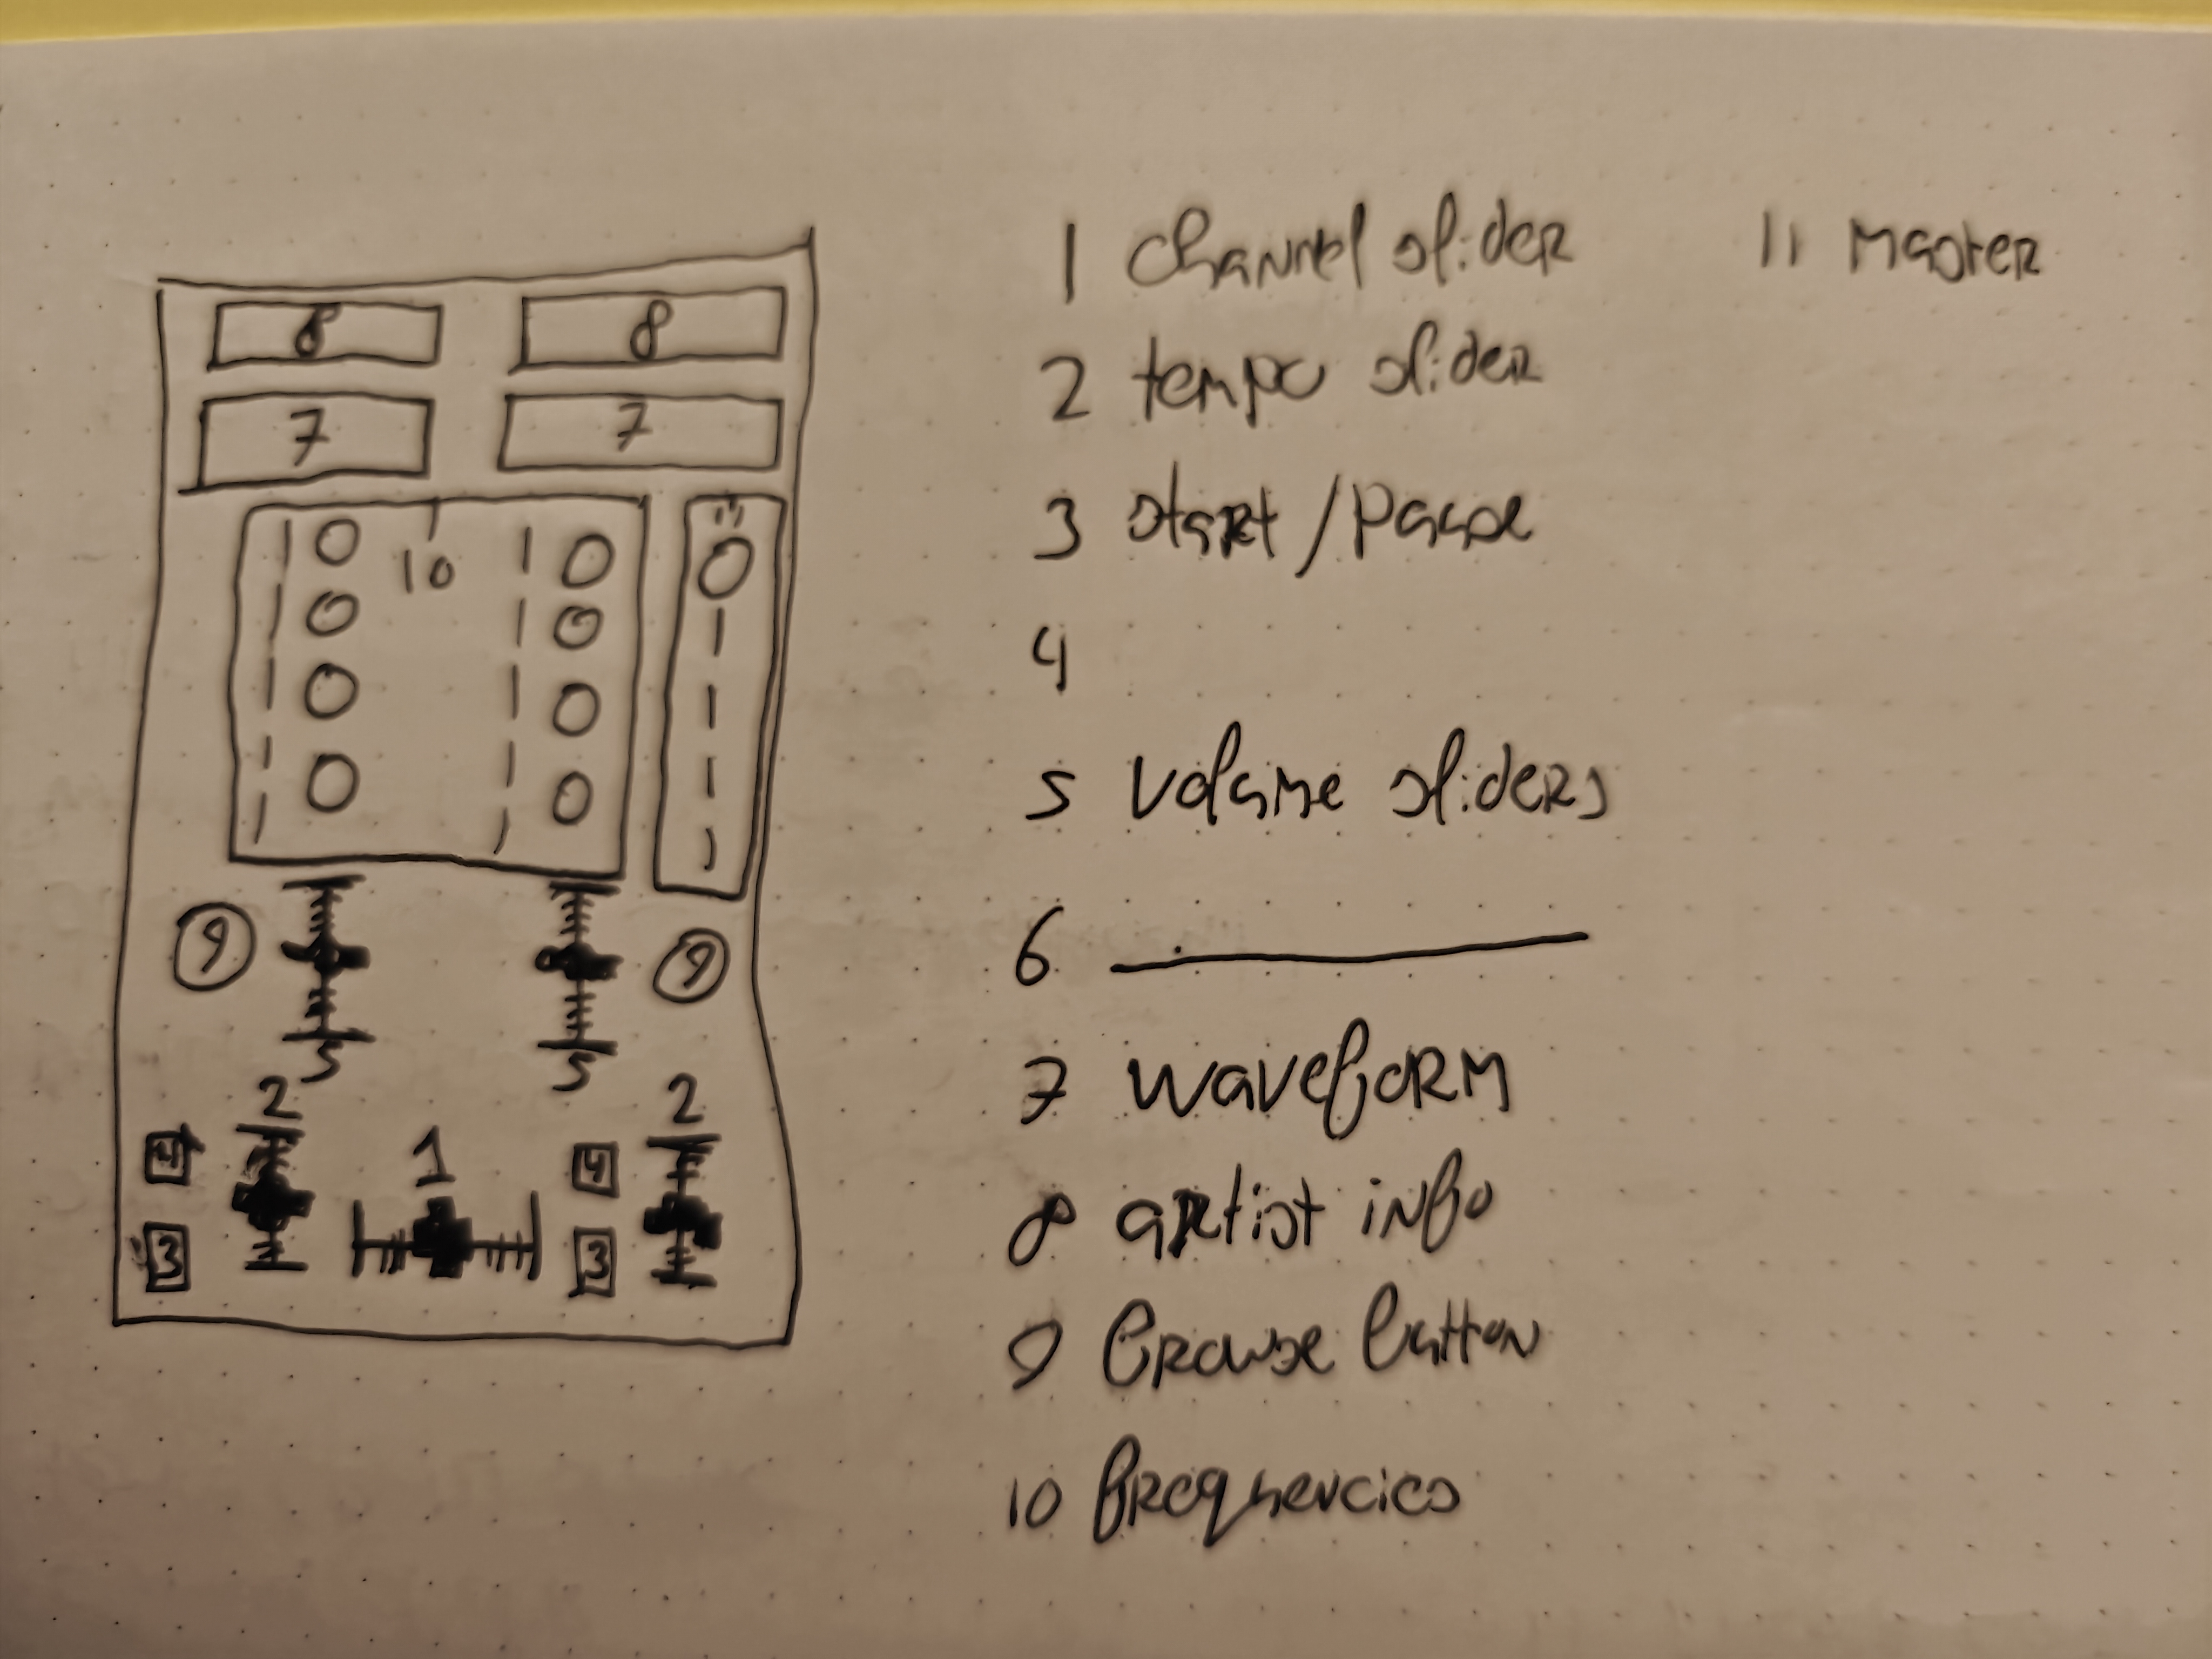 8 8
7 7
10 11
9 9
5 5
2 2
4 1 4
3 3
1 channel slider
2 tempo slider
3 start / pause
4
5 volume sliders
6
7 waveform
8 artist info
9 browse button
10 frequencies
11 master